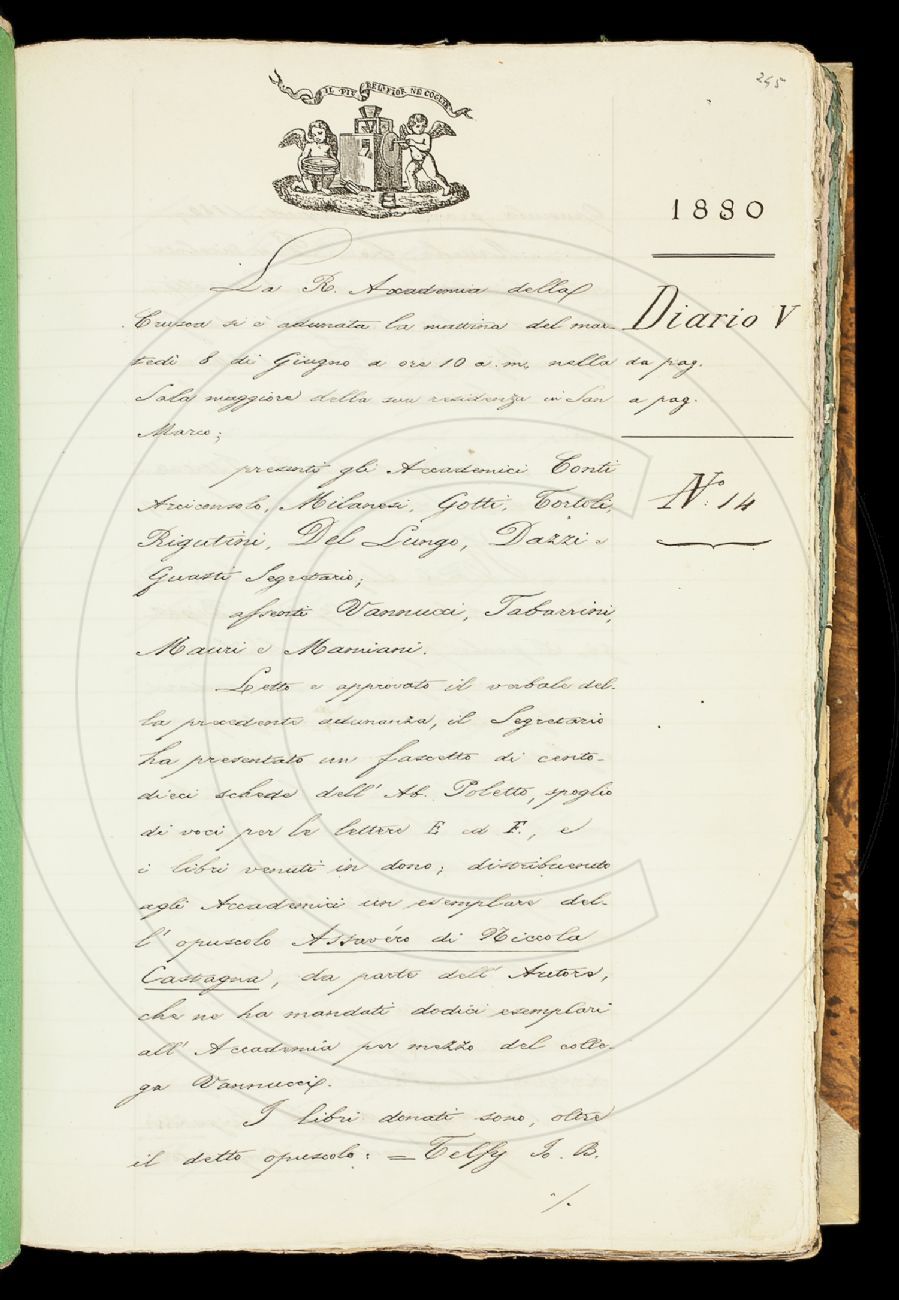 245
IL PIÙ BEL FIOR NE COGLIE
1880
Diario V
da pag.
a pag.
N.º 14
La R. Accademia della
Crusca si è adunata la mattina del mar-
tedì 8 di Giugno a ore 10 a. m. nella
Sala maggiore della sua residenza in San
Marco;
presenti gli Accademici Conti
Arciconsolo, Milanesi, Gotti, Tortoli,
Rigutini, Del Lungo, Dazzi e
Guasti Segretario;
assenti Vannucci, Tabarrini,
Mauri e Mamiani.
Letto e approvato il verbale del-
la precedente adunanza, il Segretario
ha presentato un fascetto di cento-
dieci schede dell' Ab. Poletto, spoglio
di voci per le lettere E ed F., e
i libri venuti in dono; distribuendo
agli Accademici un esemplare del-
l' opuscolo Assavéro di Niccola
Castagna, da parte dell' Autore,
che ne ha mandati dodici esemplari
all' Accademia per mezzo del colle-
ga Vannucci.
I libri donati sono, oltre
il detto opuscolo: = Telfy I. B.
./.